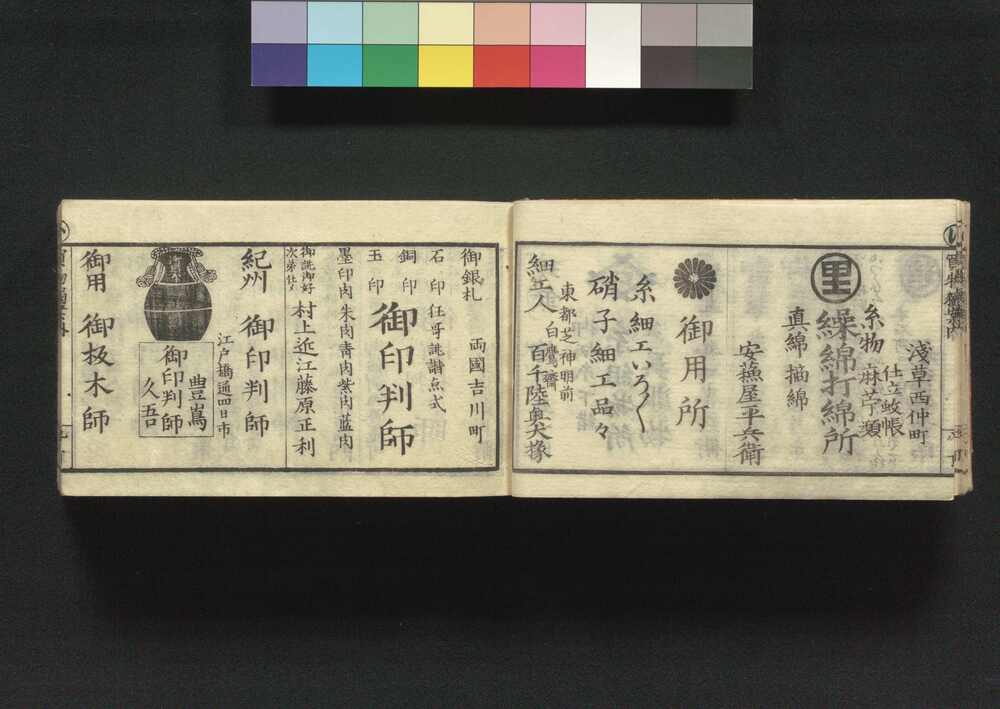 淺草西仲町
仕立蚊帳
糸物 麻苧類
里
繰綿打綿所
真綿 摘綿
安藤屋平兵衛
御用所
糸細工いろ〱
硝子細工品々
東都芝神明前
細工人 白鷹齋 百千陸奥大掾
両國吉川町
御銀札
石印 狂哥誹諧点式
銅印
玉印
御印判師
墨印肉 朱肉 青肉 紫肉 藍肉
御誂御好
次第仕候
村上近江藤原正利
紀州 御印判師
江戸橋通四日市
豊嶌
御印判師
久吾
御用 御板木師